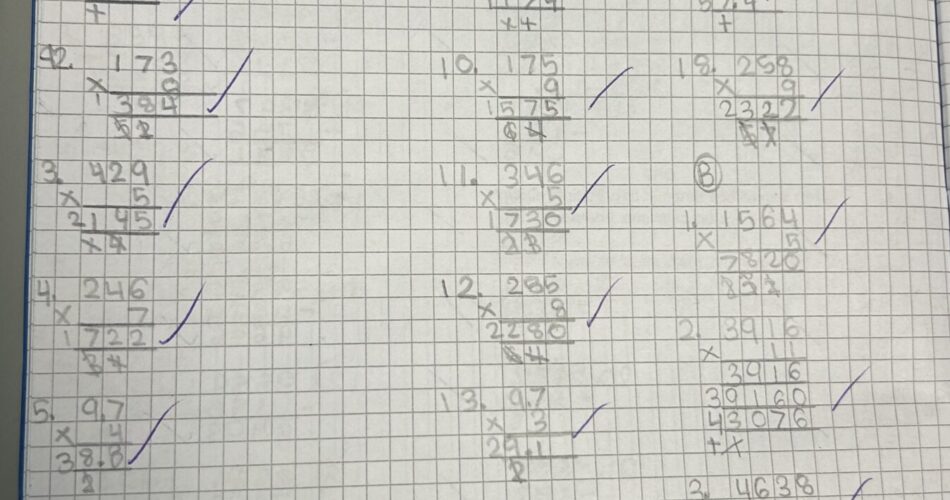 42. 173
× 8
1384
52
3. 429
× 5
2145
×4
4. 246
× 7
1722
34
5. 9.7
× 4
38.8
2
×4
10. 175
× 9
1575
64
11. 346
× 5
1730
23
12. 285
× 8
2280
64
13. 9.7
× 3
29.1
2
+
18. 258
× 9
2322
57
B
1. 1564
× 5
7820
2. 3916
× 11
3916
39160
43076
+×
3. 4638